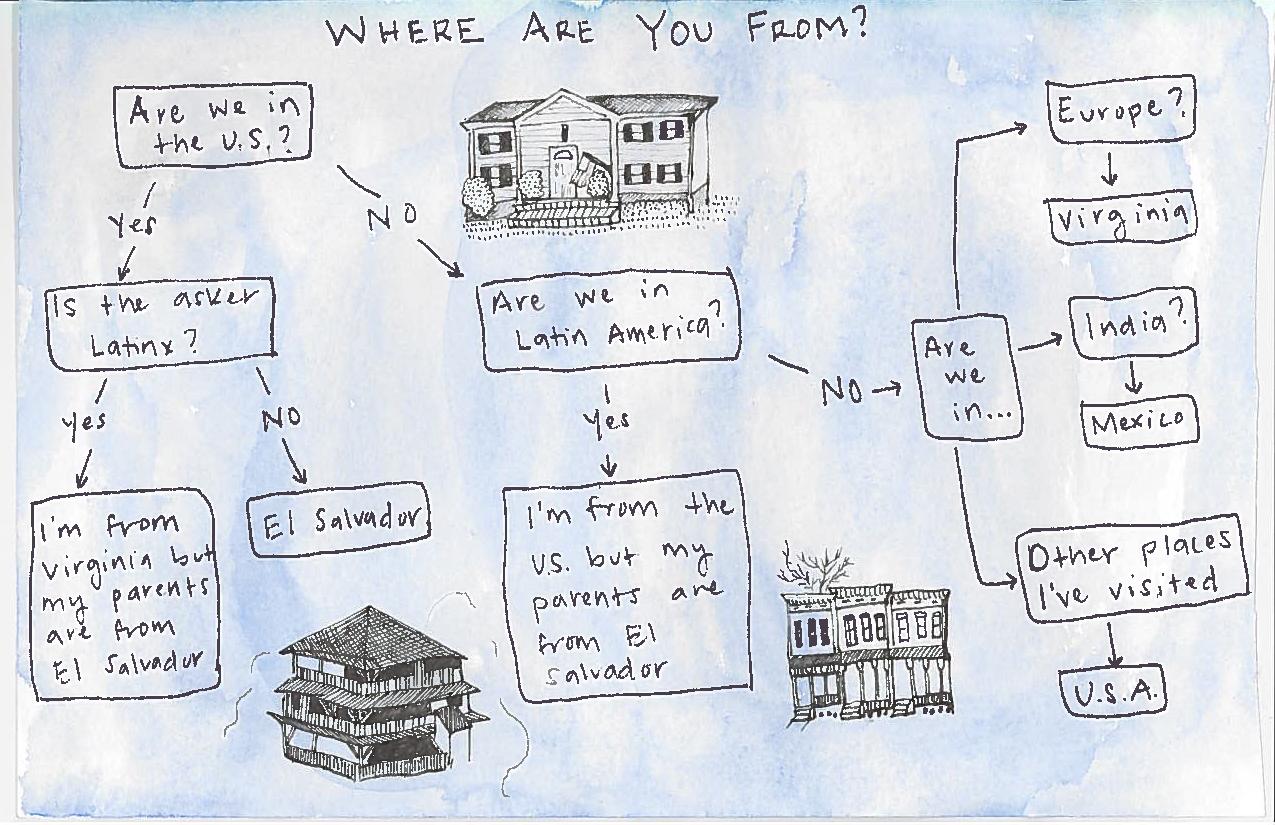 WHERE ARE YOU FROM?
Are we in
the U.S.?
Yes
NO
Is the asker
Latinx?
Yes
NO
I'm from
Virginia but
my parents
are from
El Salvador
El Salvador
Are we in
Latin America?
Yes
NO
I'm from the
U.S. but my
parents are
from El
Salvador
Are
we
in...
Europe?
Virginia
India?
Mexico
Other places
I've visited
U.S.A.